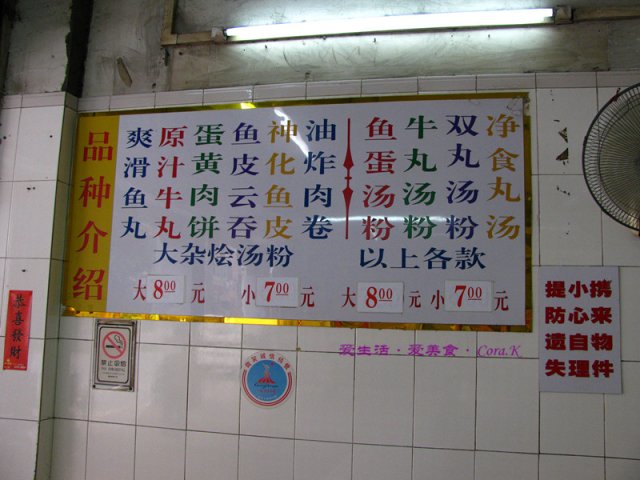 品种介绍
爽滑鱼丸
原汁牛丸
蛋黄肉饼
鱼皮云吞
神化鱼皮
油炸肉卷
鱼蛋汤粉
牛丸汤粉
双丸汤粉
净食丸汤
大杂烩汤粉
以上各款
大 8.00 元 小 7.00 元
大 8.00 元 小 7.00 元
恭喜發財
禁止吸烟
NO SMOKING
爱生活·爱美食·Cora.K
携来物件
小心自理
提防遺失